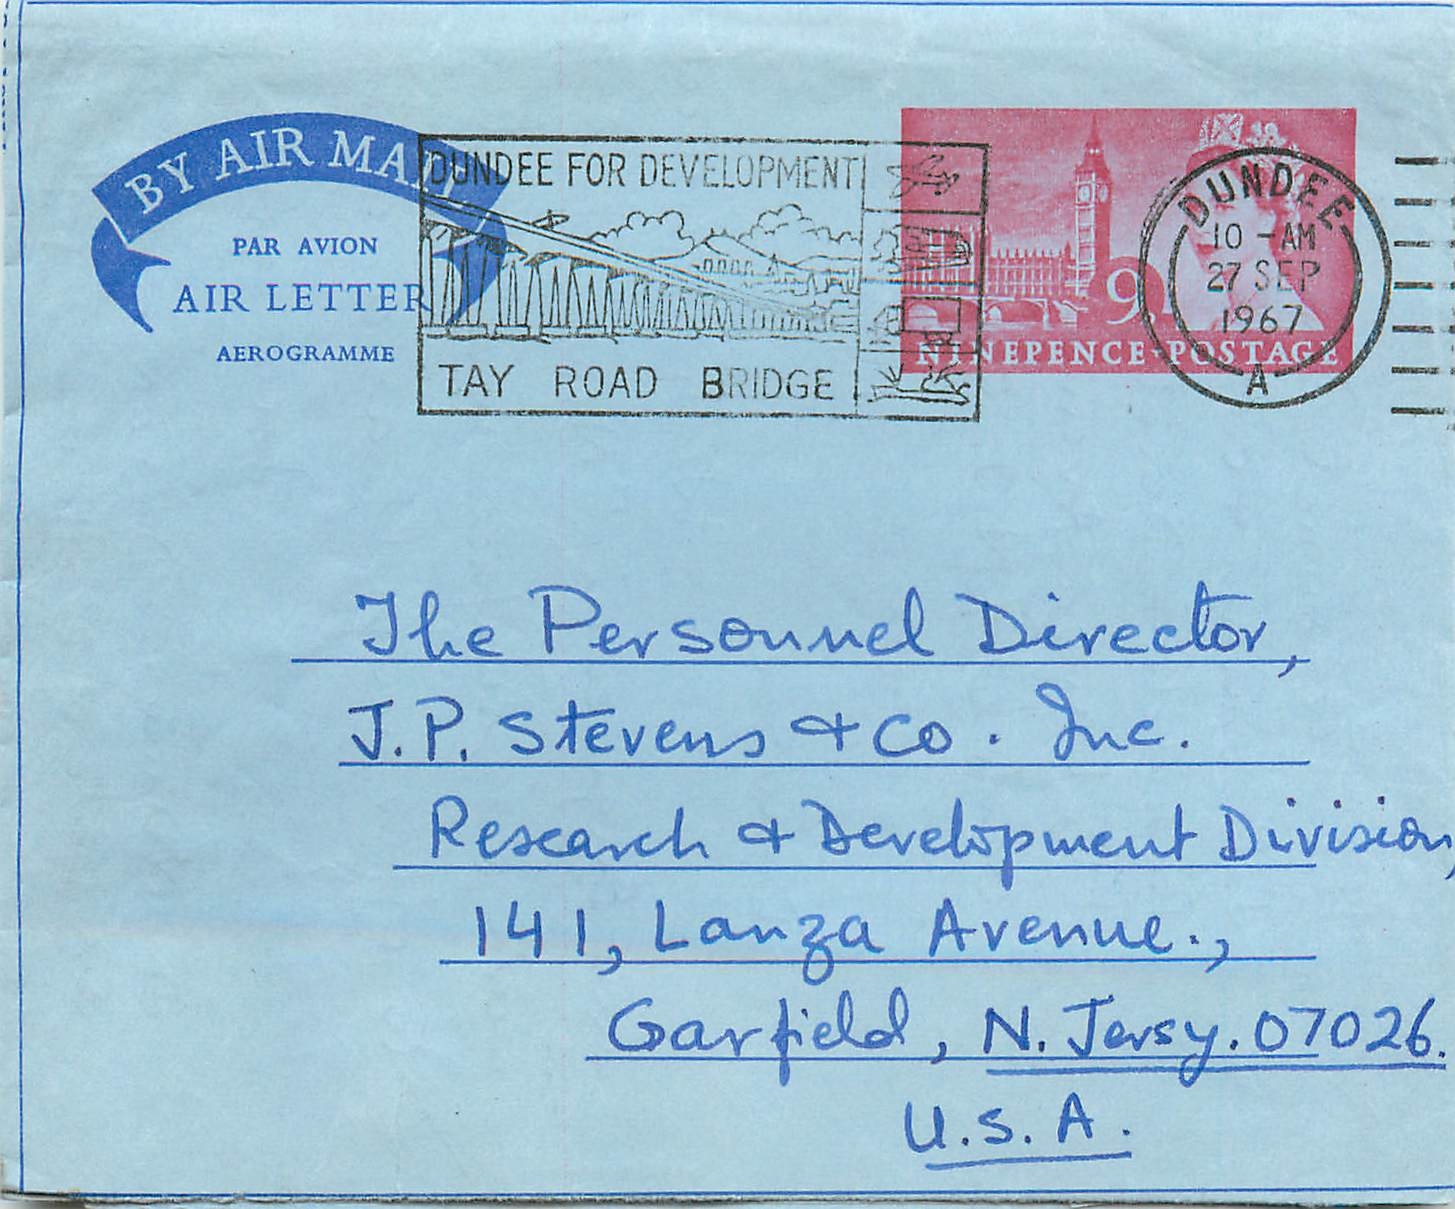 BY AIR MAIL
PAR AVION
AIR LETTER
AEROGRAMME
DUNDEE FOR DEVELOPMENT
TAY ROAD BRIDGE
9D
NINEPENCE·POSTAGE
DUNDEE
10 -AM
27 SEP
1967
A
The Personnel Director,
J.P. Stevens & Co. Inc.
Research & Development Division,
141, Lanza Avenue.,
Garfield, N. Jersy. 07026.
U.S.A.